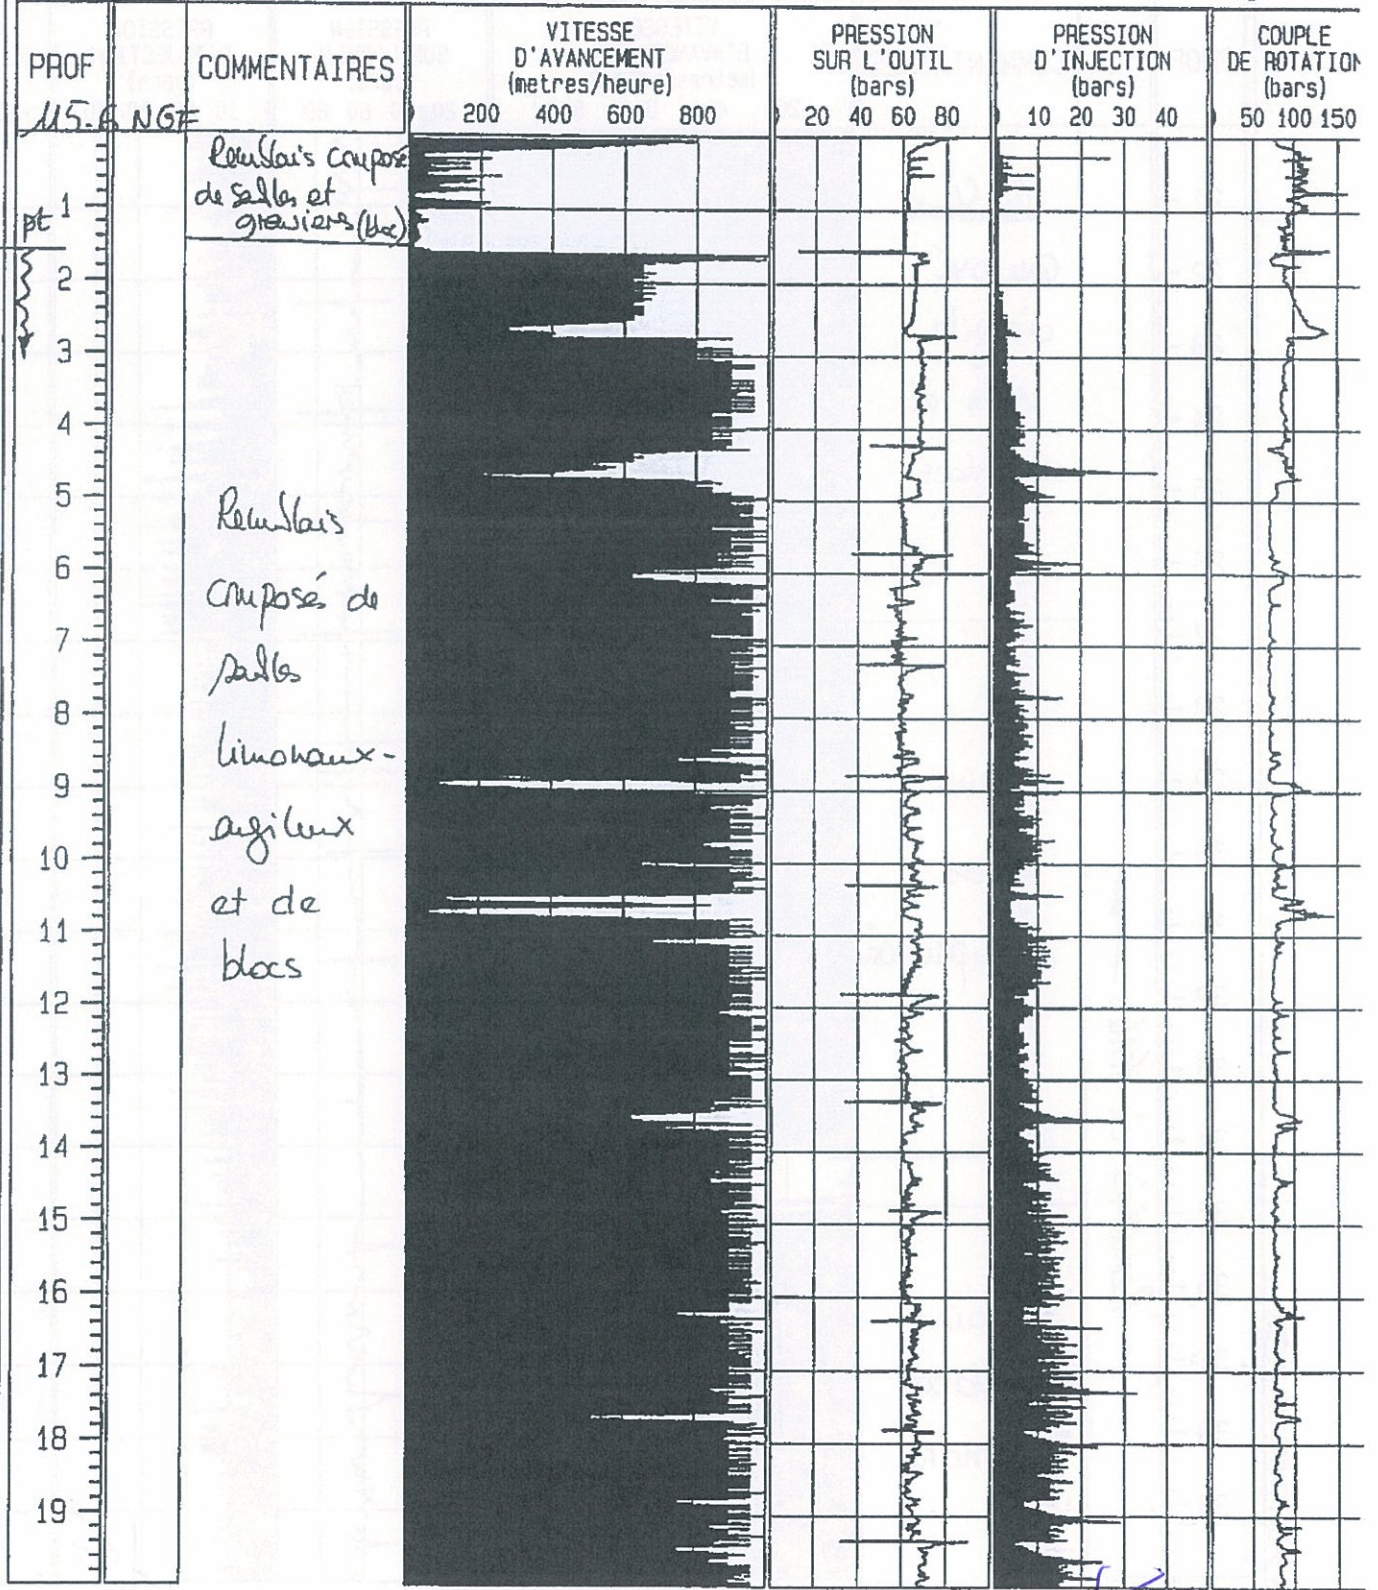 PROF
COMMENTAIRES
VITESSE
D'AVANCEMENT
(metres/heure)
200 400 600 800
PRESSION
SUR L'OUTIL
(bars)
20 40 60 80
PRESSION
D'INJECTION
(bars)
10 20 30 40
COUPLE
DE ROTATION
(bars)
50 100 150
115.6 NGF
Remblais composé
de sables et
graviers (bloc)
pt
1
2
3
4
5
6
7
8
9
10
11
12
13
14
15
16
17
18
19
Remblais
composés de
sables
limoneux-
argileux
et de
blocs